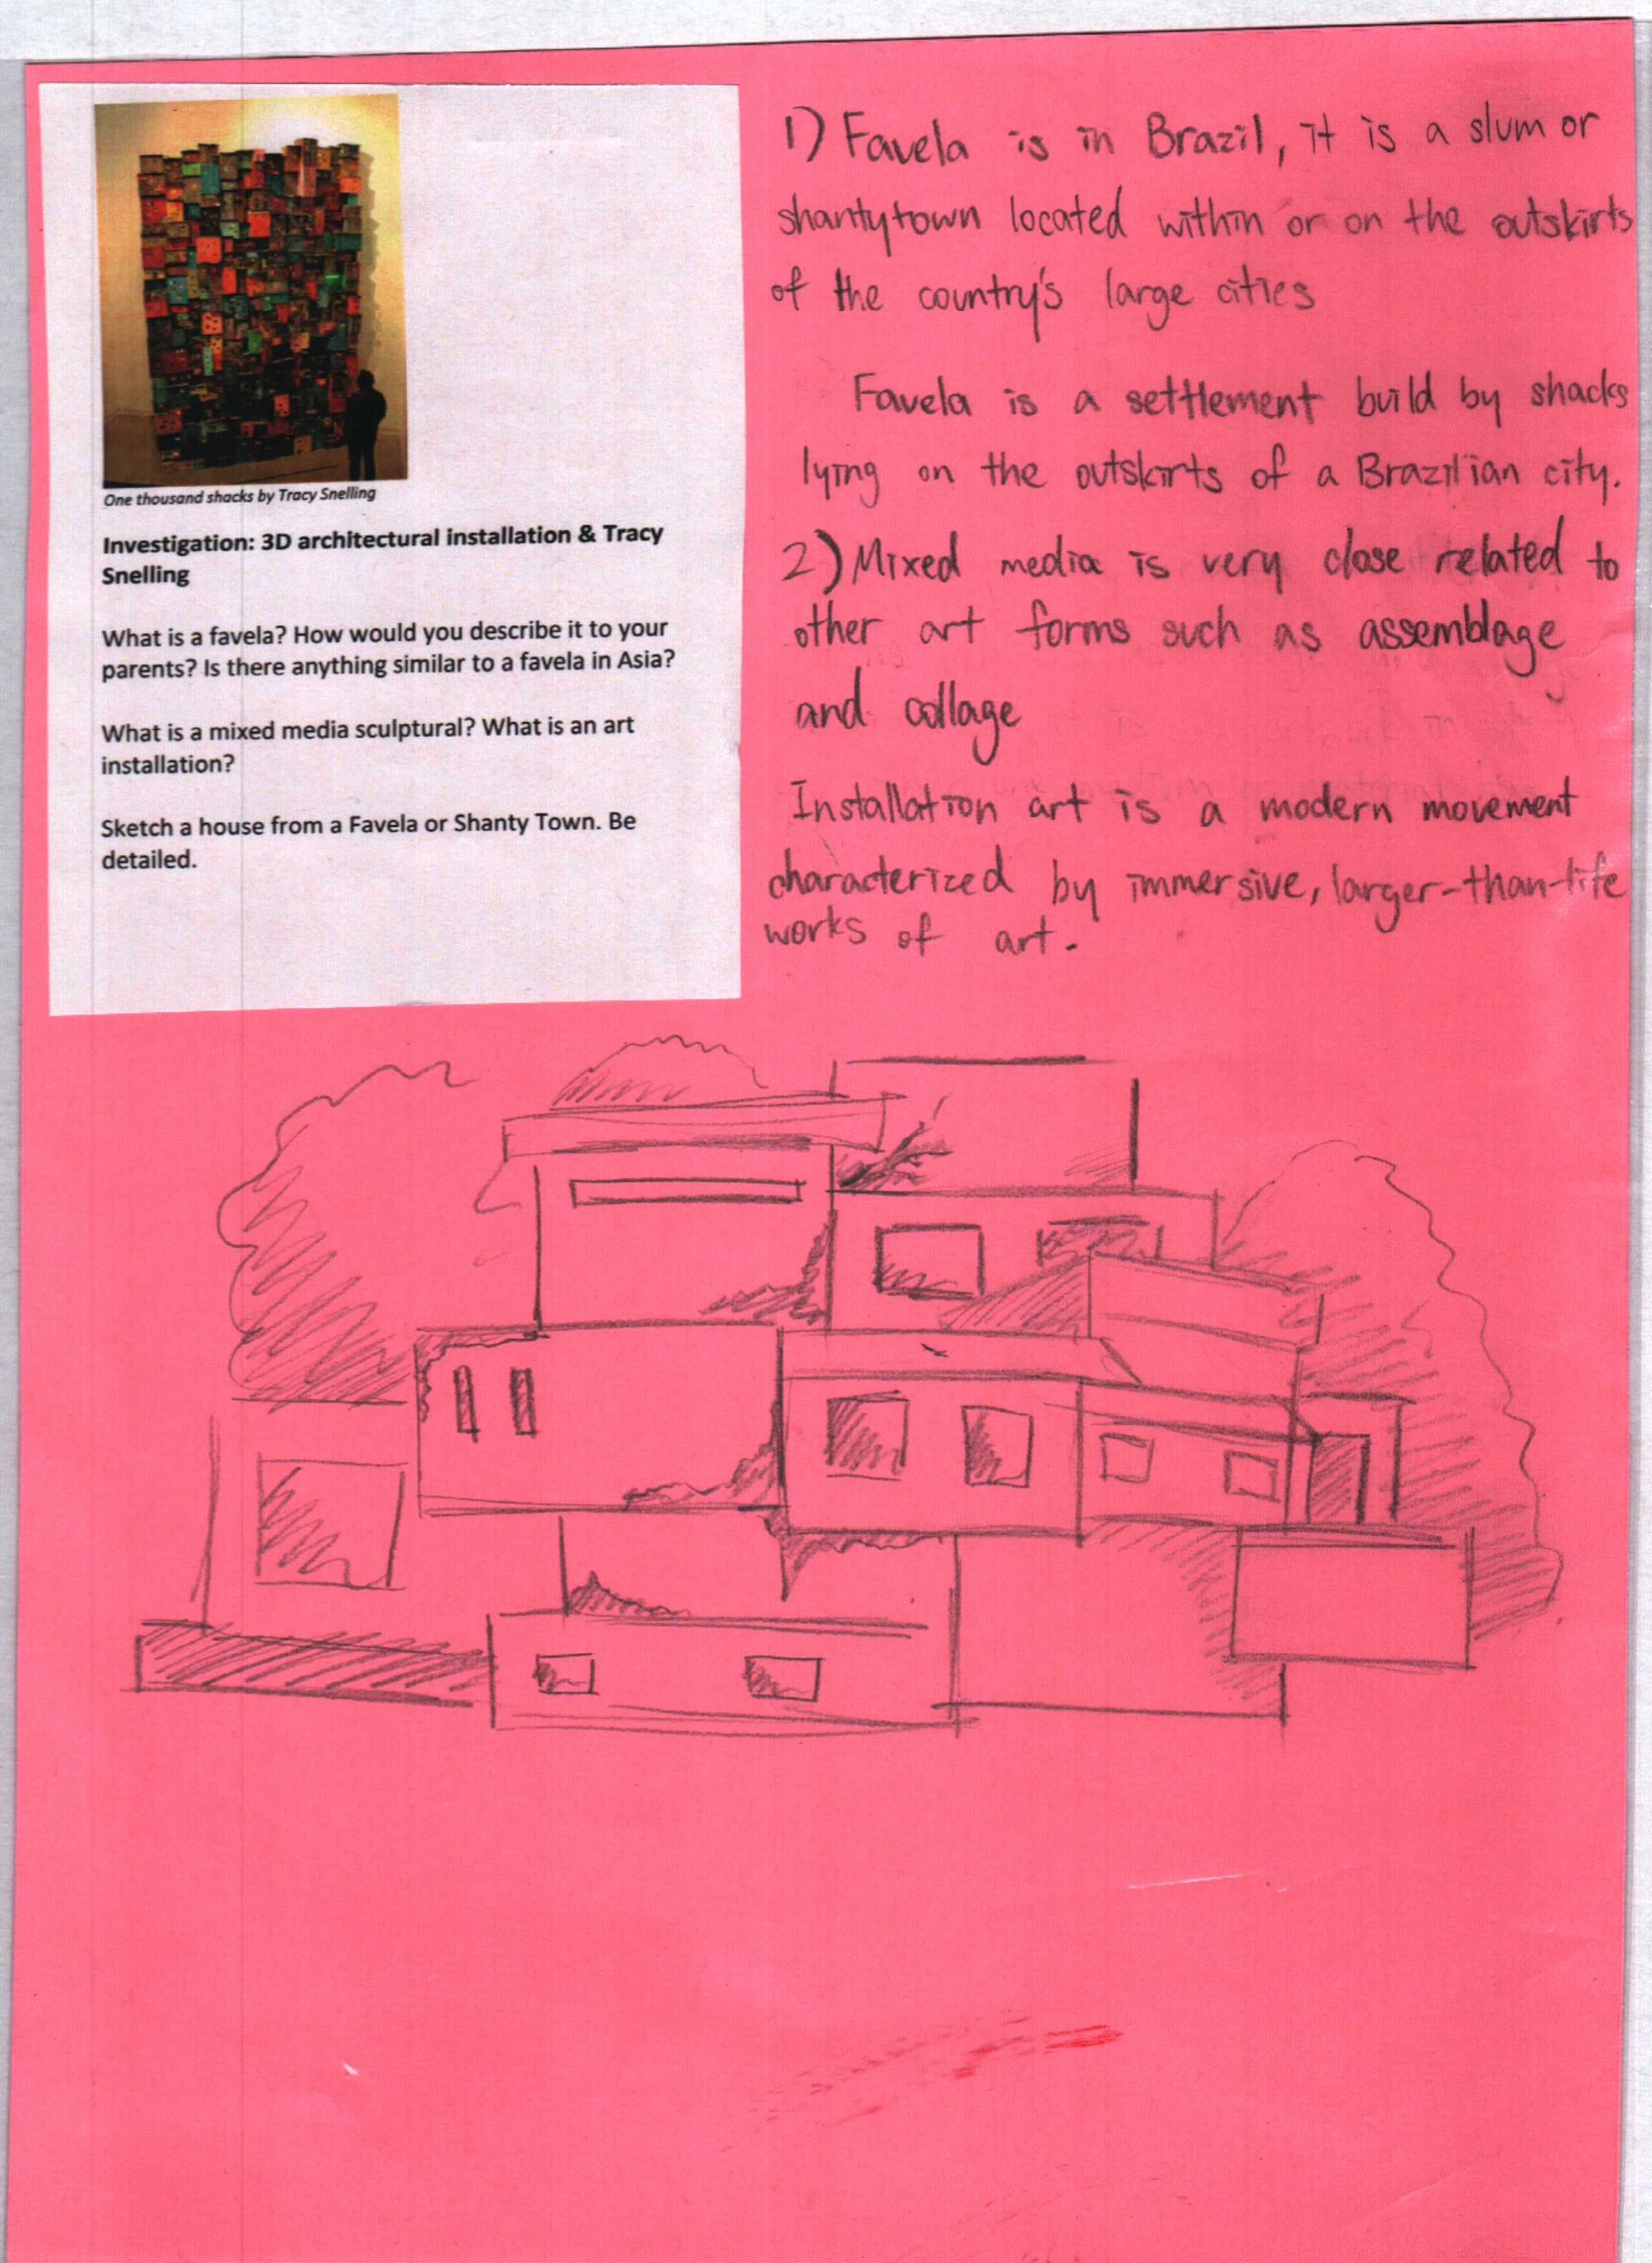 One thousand shacks by Tracy Snelling
Investigation: 3D architectural installation & Tracy
Snelling
What is a favela? How would you describe it to your
parents? Is there anything similar to a favela in Asia?
What is a mixed media sculptural? What is an art
installation?
Sketch a house from a Favela or Shanty Town. Be
detailed.
1) Favela is in Brazil, it is a slum or
shantytown located within or on the outskirts
of the country's large cities
Favela is a settlement build by shacks
lying on the outskirts of a Brazilian city.
2) Mixed media is very close related to
other art forms such as assemblage
and collage
Installation art is a modern movement
characterized by immersive, larger-than-life
works of art.